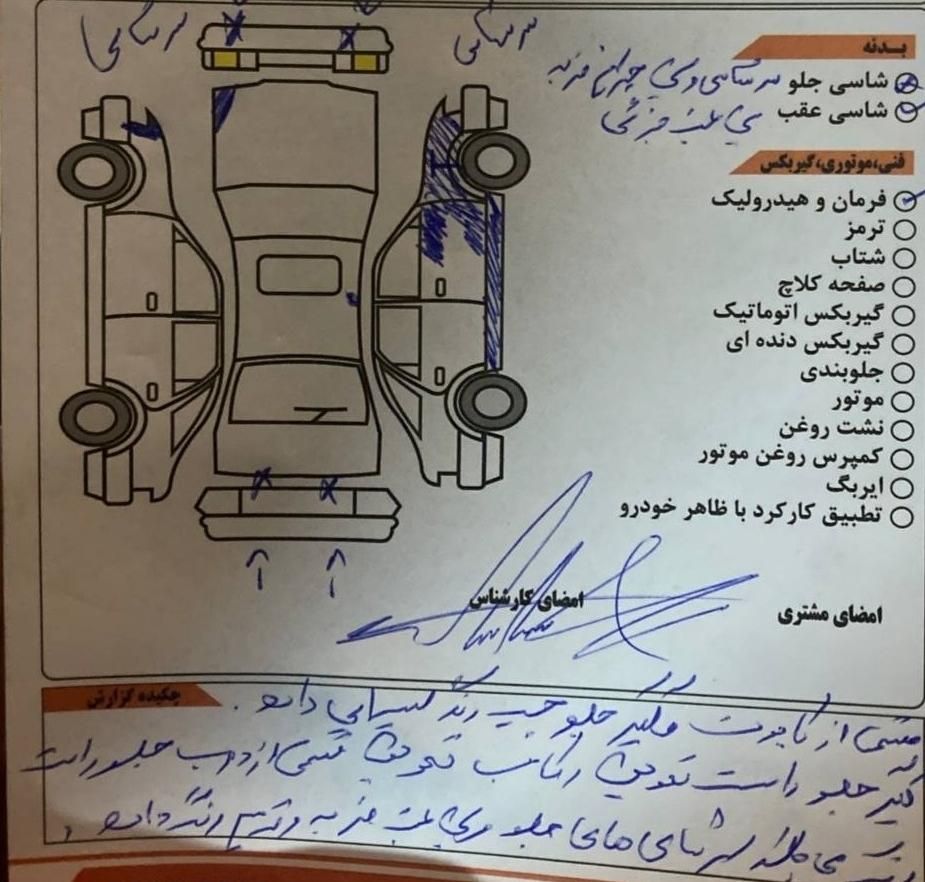 سر شاسی
سر شاسی
بدنه
شاسی جلو سر شاسی و سینی چراغ ضربه
شاسی عقب سینی عقب جزئی
فنی،موتوری،گیربکس
فرمان و هیدرولیک
ترمز
شتاب
صفحه کلاچ
گیربکس اتوماتیک
گیربکس دنده ای
جلوبندی
موتور
نشت روغن
کمپرس روغن موتور
ایربگ
تطبیق کارکرد با ظاهر خودرو
امضای کارشناس
امضای مشتری
چکیده گزارش
قسمتی از کاپوت گلگیر جلو چپ رنگ لیسه‌ای دارد.
گلگیر جلو راست تعویض رکاب تعویض قسمتی از درب جلو راست
رنگ می باشد سر شاسی های جلو سینی عقب ضربه و ترمیم رنگ دارد.